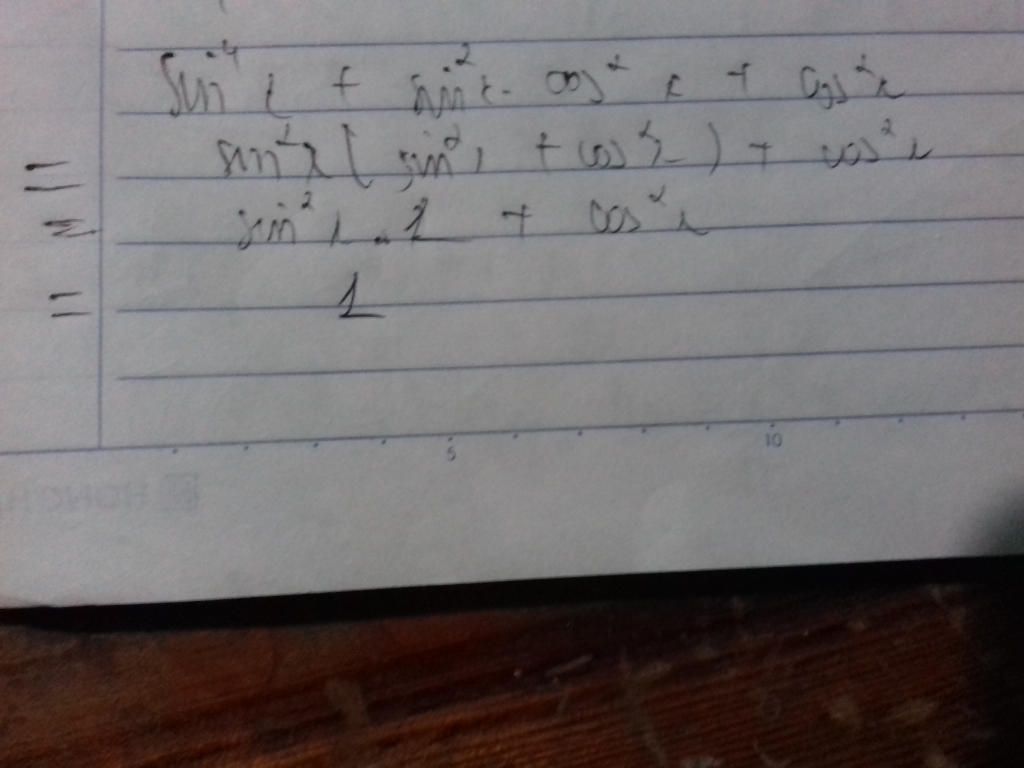 sin⁴x + sin²x. cos²x + cos²x
= sin²x( sin²x + cos²x ) + cos²x
= sin²x . 1 + cos²x
= 1
5 10